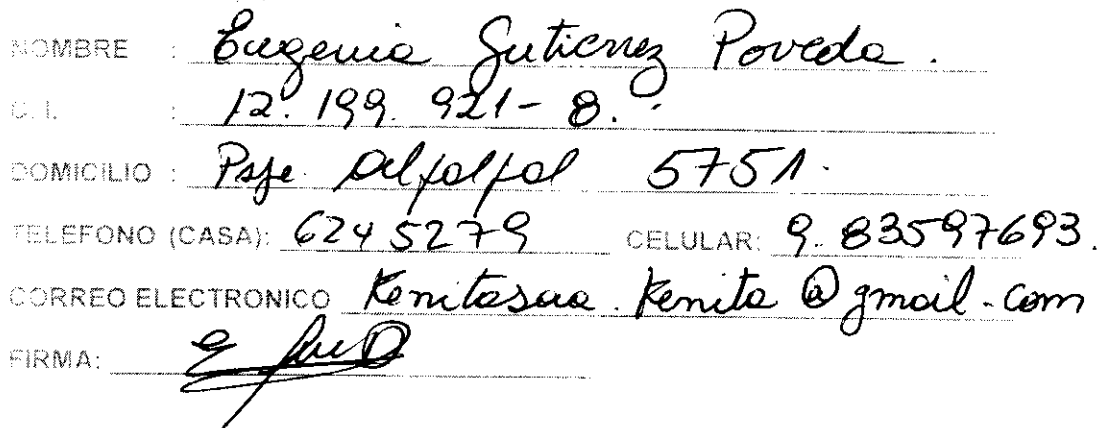 NOMBRE : Eugenia Gutierrez Poveda.
C. I. : 12.199.921-8.
DOMICILIO : Psje. Alfalfal 5751.
TELEFONO (CASA): 6245279 CELULAR: 9.83597693.
CORREO ELECTRONICO Kenitasaa.Kenita@gmail.com
FIRMA: